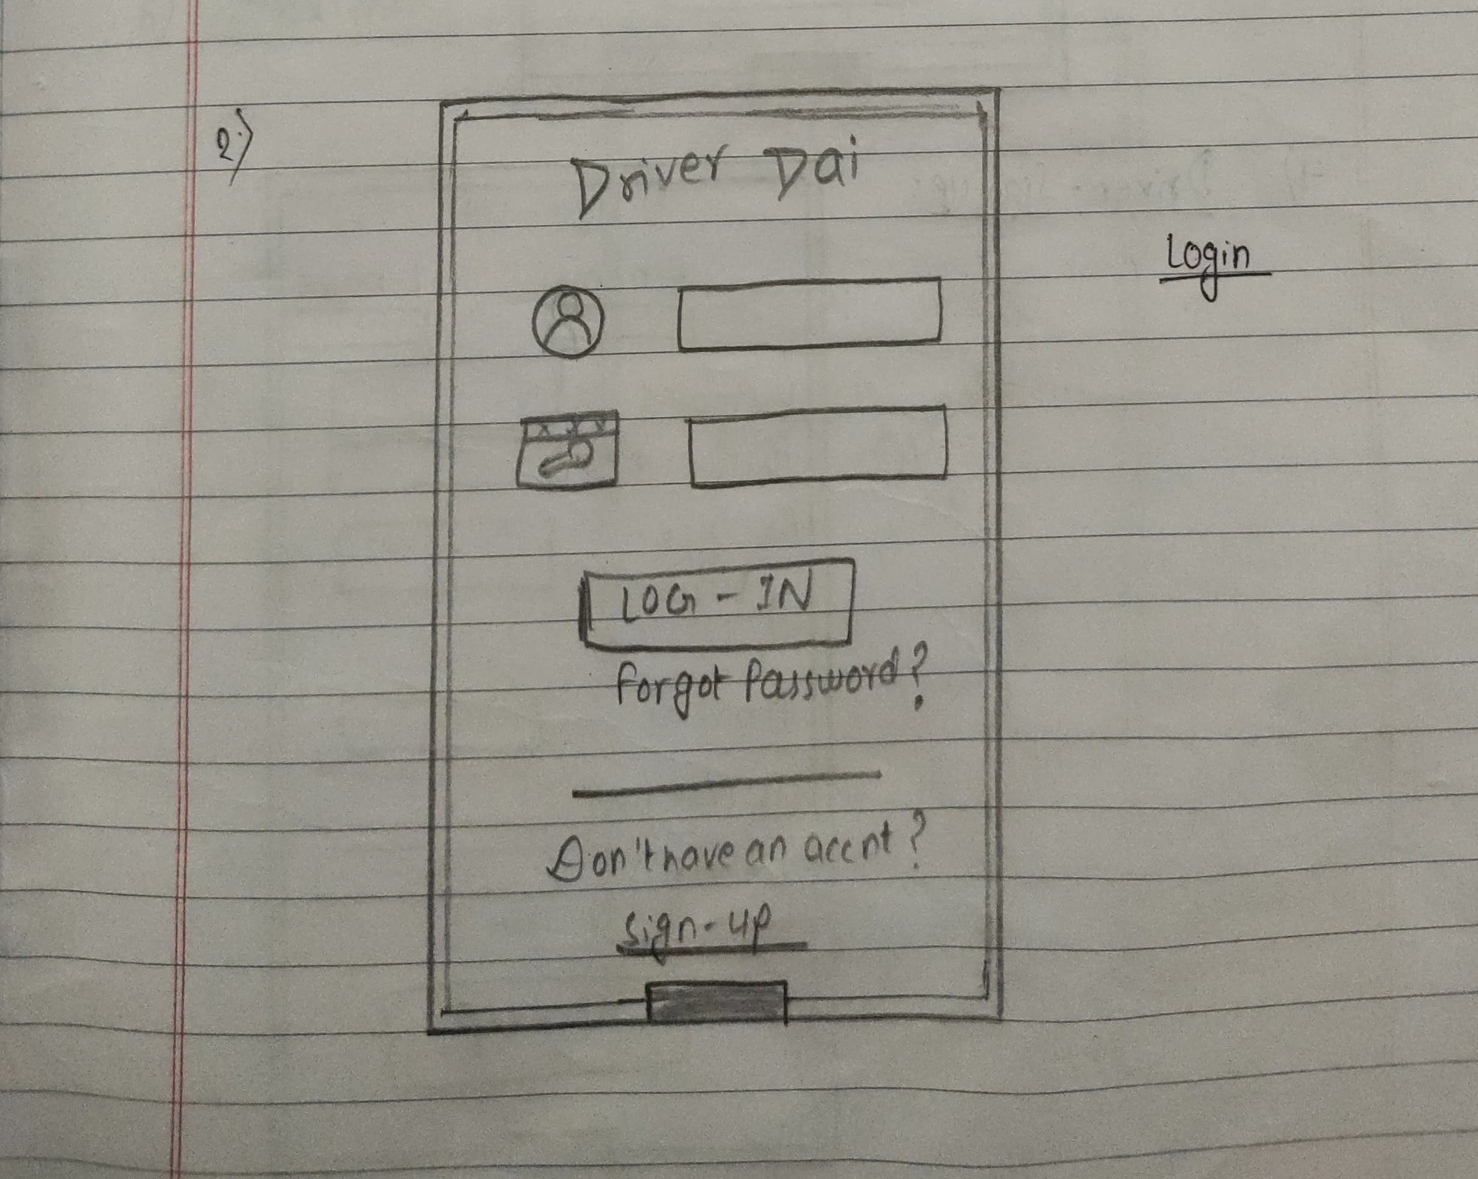 2)
Driver Dai
Login
LOG - IN
Forgot Password?
Don't have an accnt?
sign-up